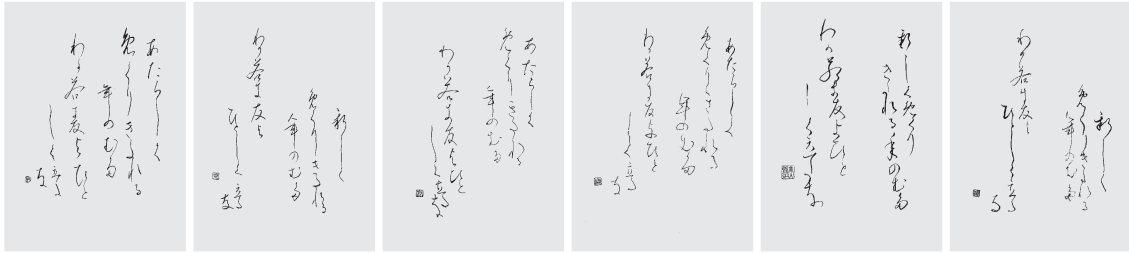 あたらしく
めくりきたれる
年のむた
わか若き友よひと
しく立た
な
新しく
めくりきたれる
年のむた
わか若き友よ
ひとしく立た
な
あたらしく
めくりきたれる
年のむた
わか若き友よひと
しく立たな
あたらしく
めくりきたれる
年のむた
わか若き友よひと
しく立た
な
新しくめくり
きたれる年のむた
わか若き友よひと
しく立たな
新しく
めくりきたれる
年のむた
わか若き友よ
ひとしく立た
な